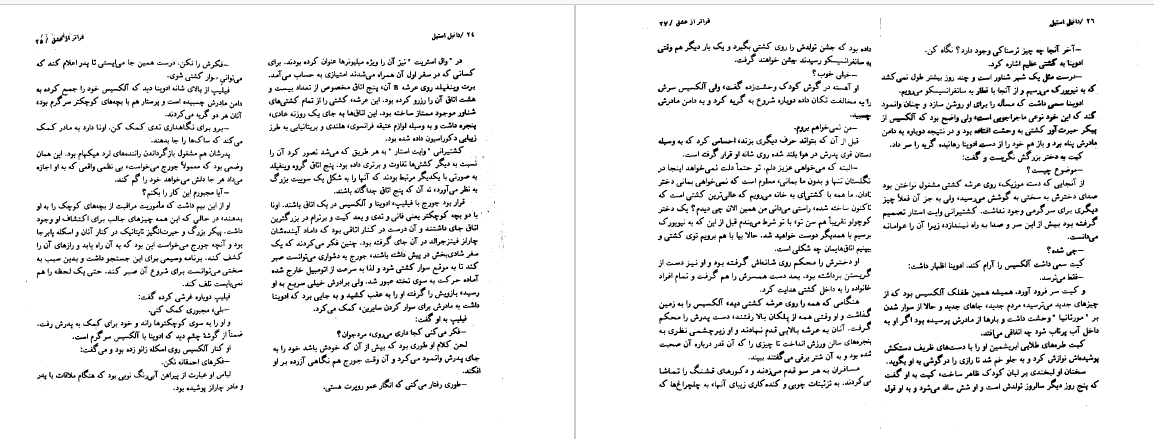 ۲۴ /دانیل استیل
در " وال استریت " نیز آن را ویژه میلیونرها عنوان کرده بودند. برای
کسانی که در سفر اول آن همراه می‌شدند امتیازی به حساب می‌آمد.
برت وینفیلد روی عرشه B آن، پنج اتاق مخصوص از تعداد بیست و
هشت اتاق آن را رزرو کرده بود. این عرشه، کشتی را از تمام کشتی‌های
شناور موجود ممتاز ساخته بود. این اتاق‌ها به جای یک روزنه عادی،
پنجره داشت و به وسیله لوازم عتیقه فرانسوی، هلندی و بریتانیایی به طرز
زیبایی دکوراسیون داده شده بود.
کشتیرانی " وایت استار " به هر طریق که می‌شد تصور کرد آن را
نسبت به دیگر کشتی‌ها تفاوت و برتری داده بود. پنج اتاق گروه وینفیلد
به صورتی با یکدیگر مرتبط بودند که آنها را به شکل یک سوییت بزرگ
به نظر می‌آورد، نه آن که پنج اتاق جداگانه باشند.
قرار بود جورج با فیلیپ، و ادوینا و آلکسیس در یک اتاق باشند. اونا
با دو بچه کوچکتر یعنی فانی و تدی و بعد کیت و برترام در بزرگترین
اتاق جای داشتند و آن درست در کنار اتاقی بود که داماد آینده‌شان
چارلز فیتزجرالد در آن جای گرفته بود. چنین فکر می‌کردند که یک
سفر شادی‌بخش در پیش داشته باشند، جورج به دشواری می‌توانست صبر
کند تا به موقع سوار کشتی شود و لذا به سرعت از اتومبیل خارج شده
آماده حرکت به سوی تخته عبور شد. ولی برادرش خیلی سریع به او
رسیده بازویش را گرفته او را به عقب کشید و به جایی برد که ادوینا
داشت به مادرش برای سوار کردن سایرین، کمک می‌کرد.
فیلیپ به او گفت:
—فکر می‌کنی کجا داری می‌روی، مرد جوان؟
لحن کلام او طوری بود که بیش از آن که خودش باشد خود را به
جای پدرش وانمود می‌کرد و آن وقت جورج هم نگاهی آزرده بر او
افکند.
—طوری رفتار می‌کنی که انگار عمو روپرت هستی.
فراتر از عشق / ۲۵
—فکرش را نکن. درست همین جا می‌ایستی تا پدر اعلام کند که
می‌توانی سوار کشتی شوی.
فیلیپ از بالای شانه اونا دید که آلکسیس خود را جمع کرده به
دامن مادرش چسبیده است و پرستار هم با بچه‌های کوچکتر سرگرم بود،
آنان هر دو گریه می‌کردند.
—برو برای نگاهداری تدی کمک کن. اونا دارد به مادر کمک
می‌کند که ساک‌ها را جا بدهند.
پدرشان هم مشغول بازگرداندن راننده‌های لرد هیکهام بود. این همان
وضعی بود که معمولاً جورج می‌خواست، بی نظمی واقعی که به او اجازه
می‌داد هر جا دلش می‌خواهد خود را گم کند.
—آیا مجبورم این کار را بکنم؟
او از این بیم داشت که مأموریت مراقبت از بچه‌های کوچک را به او
بدهند، در حالی که این همه چیزهای جالب برای اکتشاف او وجود
داشت. پیکر بزرگ و حیرت‌انگیز تایتانیک در کنار آنان و اسکله پابرجا
بود و آنچه جورج می‌خواست این بود که به آن راه یابد و رازهای آن را
کشف کند. برنامه وسیعی برای این جستجو داشت و بدین سبب به
سختی می‌توانست برای شروع آن صبر کند. حتی یک لحظه را هم
نمی‌بایست تلف کند.
فیلیپ دوباره غرشی کرده گفت:
—بلی، مجبوری کمک کنی.
و او را به سوی کوچکترها راند و خود برای کمک به پدرش رفت.
ضمناً از گوشه چشم دید که ادوینا با آلکسیس سرگرم است.
او کنار آلکسیس روی اسکله زانو زده بود و می‌گفت:
—فکرهای احمقانه نکن.
لباس او عبارت از پیراهن آبی‌رنگ نویی بود که هنگام ملاقات با پدر
و مادر چارلز پوشیده بود.
۲۶ /دانیل استیل
—آخر آنجا چه چیز ترسناکی وجود دارد؟ نگاه کن.
ادوینا به کشتی عظیم اشاره کرد.
—درست مثل یک شهر شناور است و چند روز بیشتر طول نمی‌کشد
که به نیویورک می‌رسیم و از آنجا با قطار به سانفرانسیسکو می‌رویم.
ادوینا سعی داشت که مسأله را برای او روشن سازد و چنان وانمود
کند که این خود نوعی ماجراجویی است، ولی واضح بود که آلکسیس از
پیکر حیرت‌آور کشتی به وحشت افتاده بود و در نتیجه دوباره به دامن
مادرش پناه برد و باز هم خود را از دست ادوینا رهانیده گریه را سر داد.
کیت به دختر بزرگش نگریست و گفت:
—موضوع چیست؟
از آنجایی که دسته موزیک، روی عرشه کشتی مشغول نواختن بود
صدای دخترش به سختی به گوشش می‌رسید، ولی به جز آن فعلاً چیز
دیگری برای سرگرمی وجود نداشت. کشتیرانی وایت استار تصمیم
گرفته بود بیش از این سر و صدا به راه نیندازد، زیرا آن را عوامانه
می‌دانست.
—چی شده؟
کیت سعی داشت آلکسیس را آرام کند. ادوینا اظهار داشت:
—فقط می‌ترسد.
و کیت سر فرود آورد، همیشه همین طفلک آلکسیس بود که از
چیزهای جدید می‌ترسید، مردم جدید، جاهای جدید و حالا از سوار شدن
بر " مورتانیا " وحشت داشت و بارها از مادرش پرسیده بود اگر او به
داخل آب پرتاب شود چه اتفاقی می‌افتد.
کیت طره‌های طلایی ابریشمین او را با دست‌های ظریف دستکش
پوشیده‌اش نوازش کرد و به جلو خم شد تا رازی را درگوشی به او بگوید.
سخنان او لبخندی بر لبان کودک ظاهر ساخت، کیت به او گفت
که پنج روز دیگر سالروز تولدش است و او شش ساله می‌شود و به او قول
فراتر از عشق / ۲۷
داده بود که جشن تولدش را روی کشتی بگیرد و یک بار دیگر هم وقتی
به سانفرانسیسکو رسیدند جشن خواهند گرفت.
—خیلی خوب؟
او آهسته در گوش کودک وحشت‌زده گفت، ولی آلکسیس سرش
را به مخالفت تکان داده دوباره شروع به گریه کرد و به دامن مادرش
چسبید.
—من نمی‌خواهم بروم.
قبل از آن که بتواند حرف دیگری بزند، احساس کرد که به وسیله
دستان قوی پدرش در هوا بلند شده روی شانه او قرار گرفته است.
—البته که می‌خواهی عزیز دلم. تو حتماً دلت نمی‌خواهد اینجا در
انگلستان تنها و بدون ما بمانی، معلوم است که نمی‌خواهی بمانی دختر
نادان. ما همه با کشتی‌ای به خانه می‌رویم که عالی‌ترین کشتی است که
تاکنون ساخته شده، راستی می‌دانی من همین الان چی دیدم؟ یک دختر
کوچولو تقریباً هم سن تو، با تو شرط می‌بندم قبل از این که به نیویورک
برسیم با همدیگر دوست خواهید شد. حالا بیا با هم برویم توی کشتی و
ببینم اتاق‌هایمان چه شکلی است.
او دخترش را محکم روی شانه‌اش گرفته بود و او نیز دست از
گریستن برداشته بود. بعد دست همسرش را هم گرفت و تمام افراد
خانواده را به داخل کشتی هدایت کرد.
هنگامی که همه را روی عرشه کشتی دید، آلکسیس را به زمین
گذاشت و او وقتی همه از پلکان بالا رفتند، دست پدرش را محکم
گرفت. آنان به عرشه بالایی قدم نهادند و او زیرچشمی نظری به
پنجره‌های سالن ورزش انداخت تا چیزی را که آن قدر درباره آن صحبت
شده بود و به آن شتر برقی می‌گفتند ببیند.
مسافران به هر سو قدم می‌زدند و دکورهای قشنگ را تماشا
می‌کردند. به تزئینات چوبی و کنده‌کاری زیبای آنها، به چلچراغ‌ها که